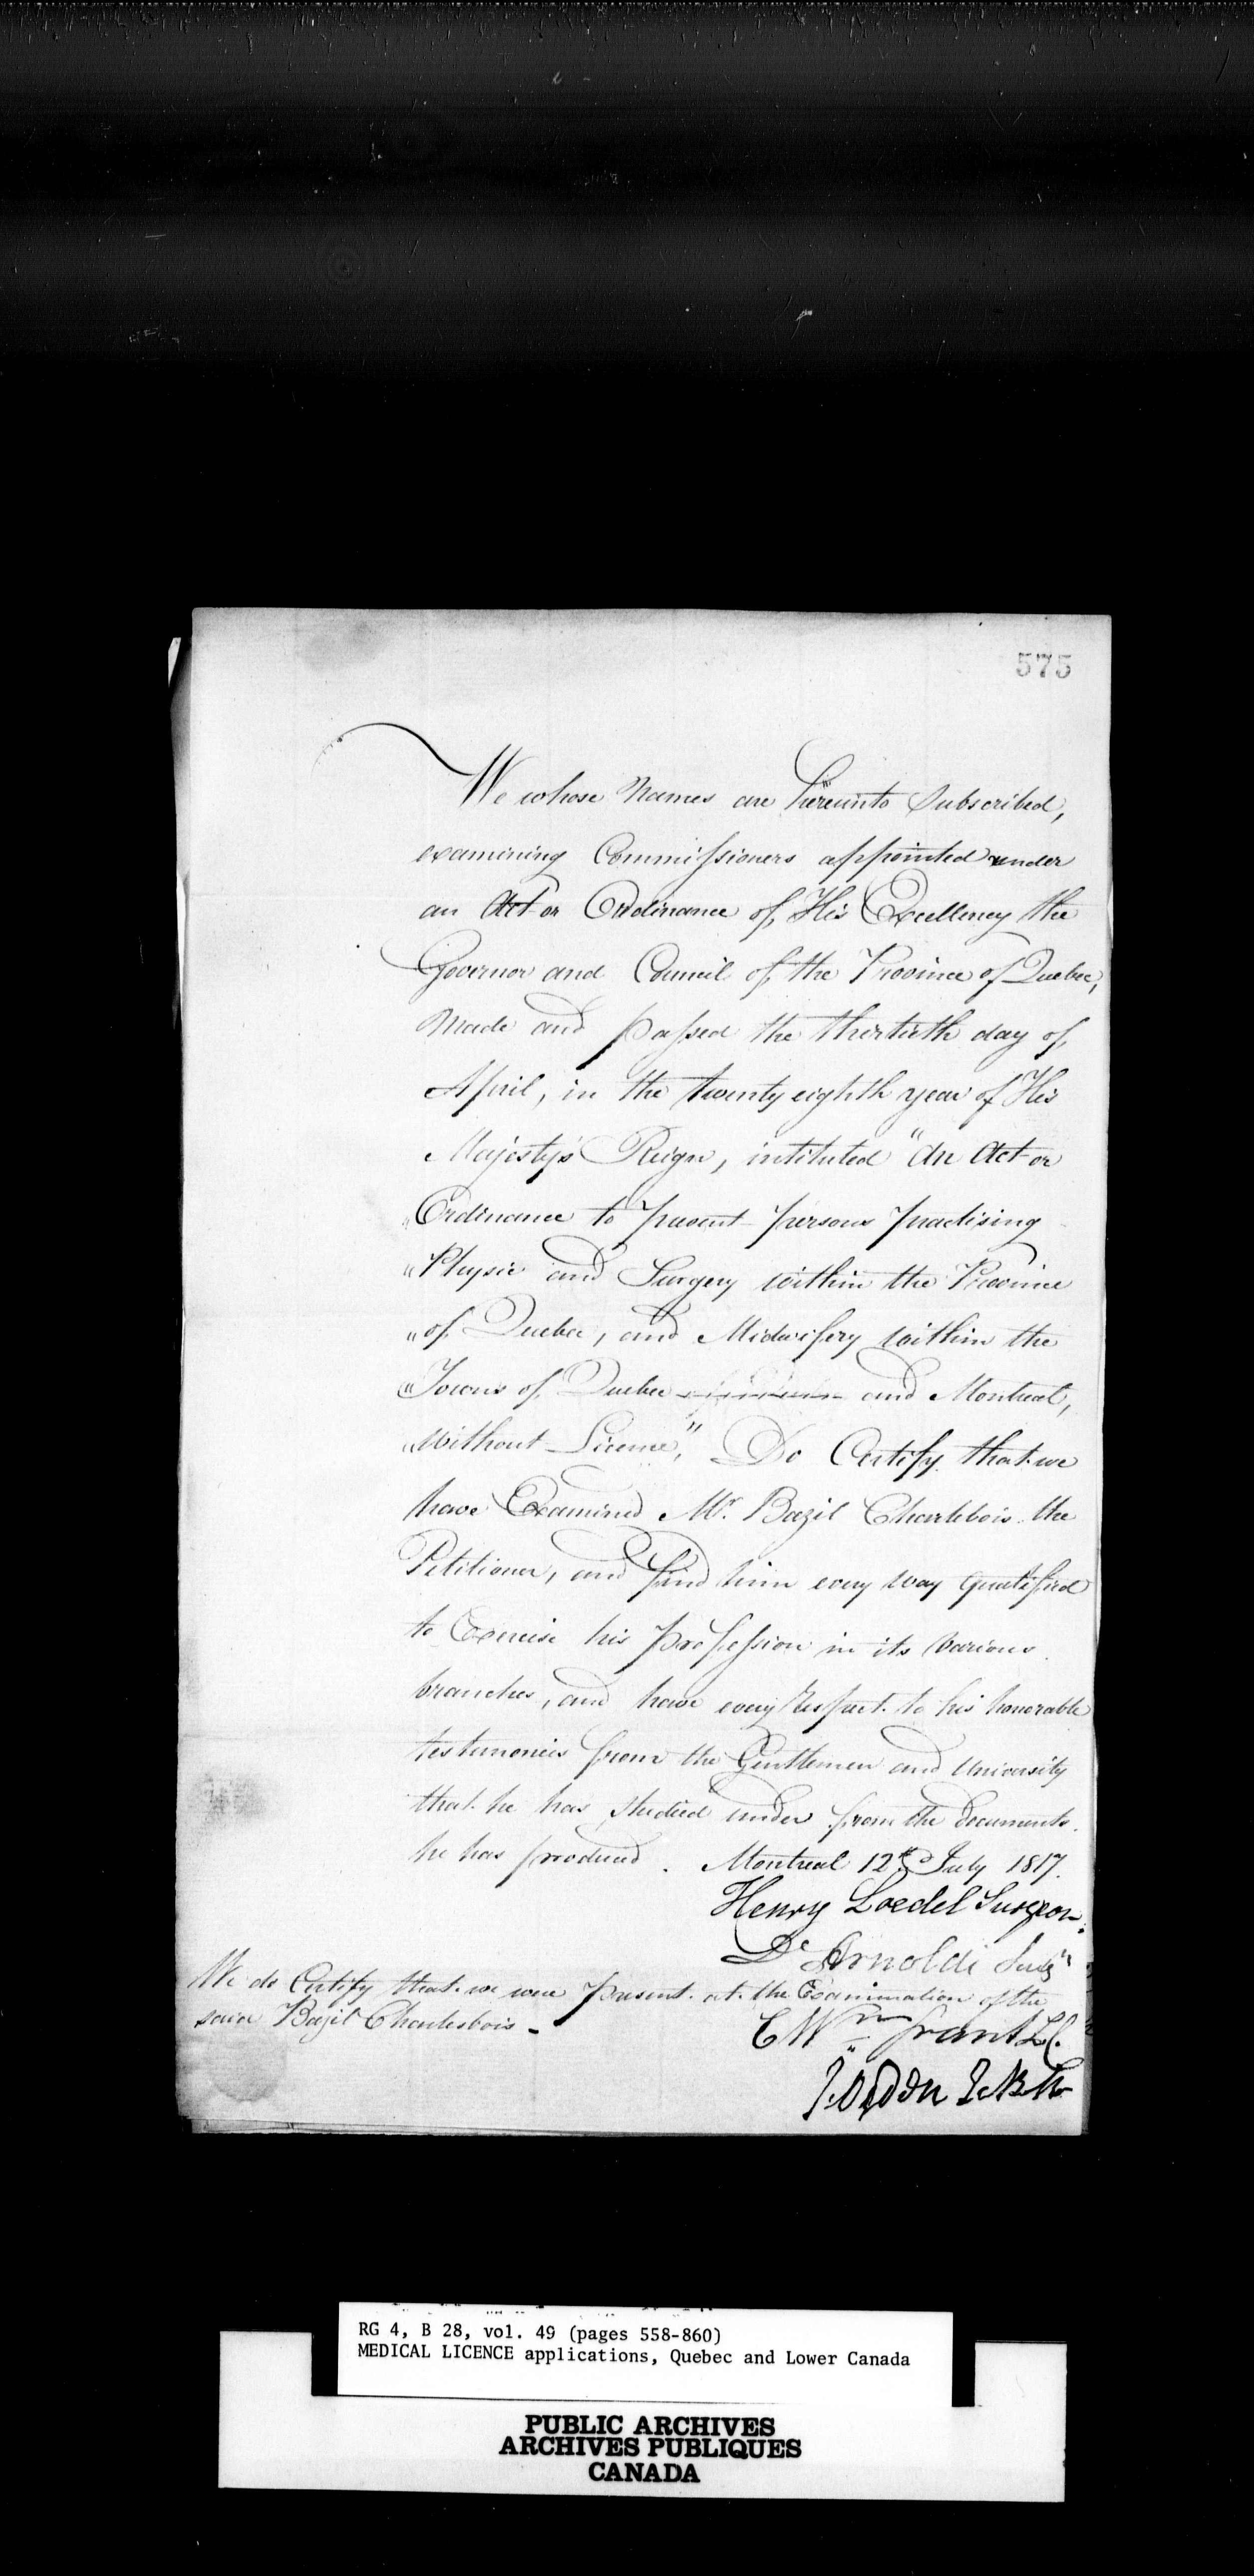 575
We whose Names are hereunto Subscribed,
examining Commissioners appointed under
an Act or Ordinance of His Excellency the
Governor and Council of the Province of Quebec,
Made and passed the thirtieth day of
April, in the twenty eighth year of His
Majesty's Reign, intituted "An Act or
"Ordinance to prevent persons practising
"Physic and Surgery within the Province
"of Quebec, and Midwifery within the
"Towns of Quebec and Montreal,
"Without License," Do Certify that we
have Examined Mr. Bazil Charlebois the
Petitioner, and find him every way qualified
to Exercise his profession in its various
branches, and have every respect to his honorable
testimonies from the Gentlemen and University
that he has studied under from the documents
he has produced. Montreal 12th July 1817.
Henry Loedel Surgeon
Dl Arnoldi Surgn
We do Certify that we were present at the Examination of the
said Bazil Charlesbois -
C Wm Grant LC.
RG 4, B 28, vol. 49 (pages 558-860)
MEDICAL LICENCE applications, Quebec and Lower Canada
PUBLIC ARCHIVES
ARCHIVES PUBLIQUES
CANADA